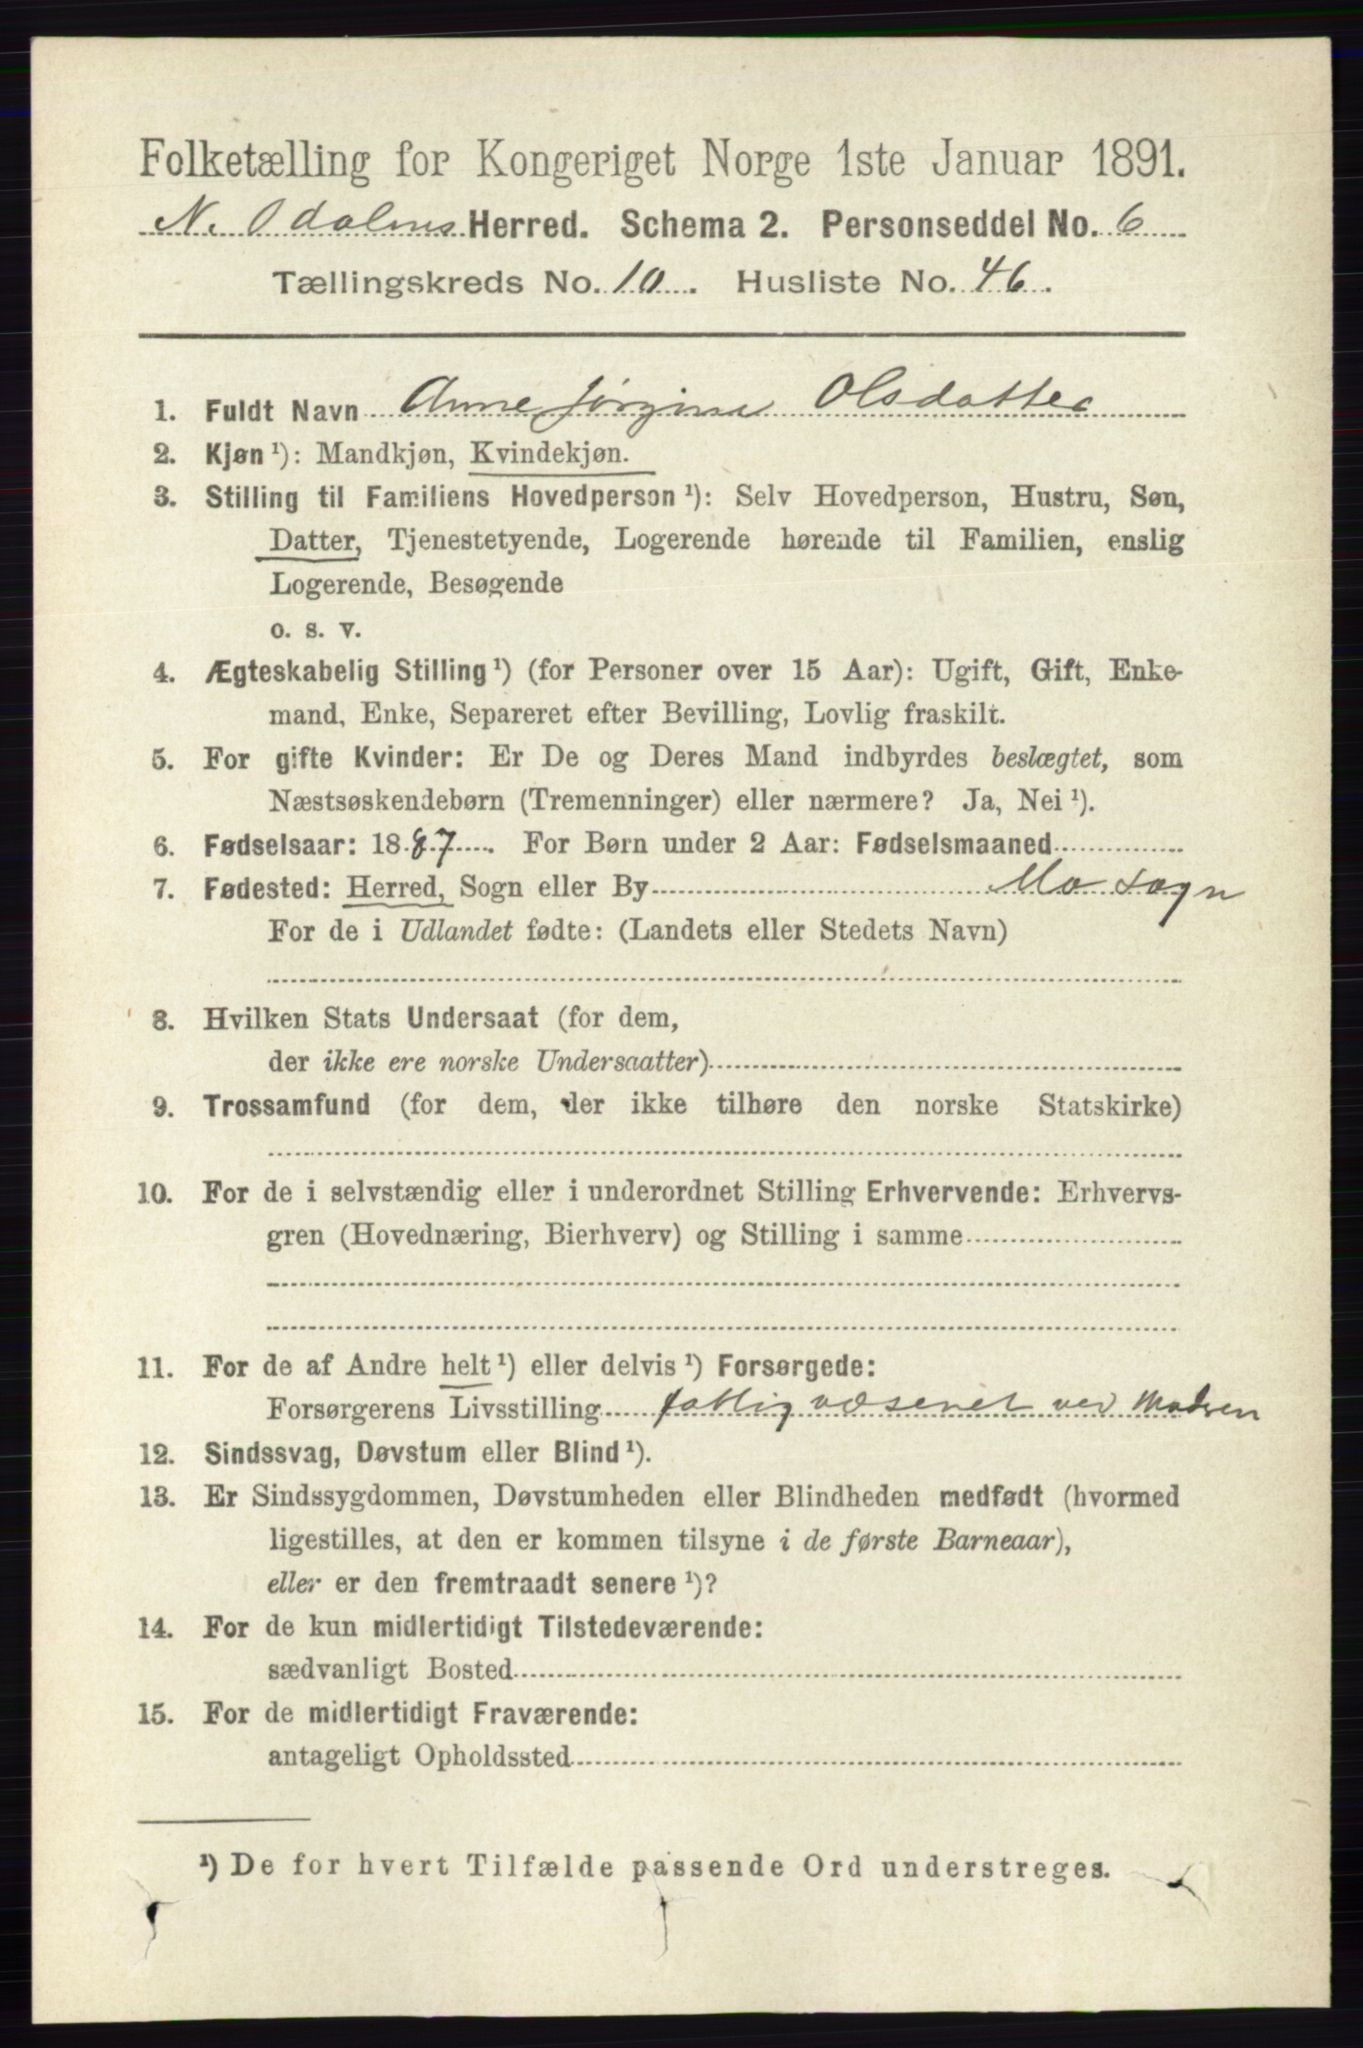 Folketælling for Kongeriget Norge 1ste Januar 1891.
N. Odalens Herred. Schema 2. Personseddel No. 6
Tællingskreds No. 10. Husliste No. 46.
1. Fuldt Navn Anne Jørgine Olsdatter
2. Kjøn ¹): Mandkjøn, Kvindekjøn.
3. Stilling til Familiens Hovedperson ¹): Selv Hovedperson, Hustru, Søn,
Datter, Tjenestetyende, Logerende hørende til Familien, enslig
Logerende, Besøgende
o. s. v.
4. Ægteskabelig Stilling ¹) (for Personer over 15 Aar): Ugift, Gift, Enke-
mand, Enke, Separeret efter Bevilling, Lovlig fraskilt.
5. For gifte Kvinder: Er De og Deres Mand indbyrdes beslægtet, som
Næstsøskendebørn (Tremenninger) eller nærmere? Ja, Nei ¹).
6. Fødselsaar: 1887. For Børn under 2 Aar: Fødselsmaaned
7. Fødested: Herred, Sogn eller By Mo Sogn
For de i Udlandet fødte: (Landets eller Stedets Navn)
8. Hvilken Stats Undersaat (for dem,
der ikke ere norske Undersaatter)
9. Trossamfund (for dem, der ikke tilhøre den norske Statskirke)
10. For de i selvstændig eller i underordnet Stilling Erhvervende: Erhvervs-
gren (Hovednæring, Bierhverv) og Stilling i samme
11. For de af Andre helt ¹) eller delvis ¹) Forsørgede:
Forsørgerens Livsstilling fattigvæsenet ved Modren
12. Sindssvag, Døvstum eller Blind ¹).
13. Er Sindssygdommen, Døvstumheden eller Blindheden medfødt (hvormed
ligestilles, at den er kommen tilsyne i de første Barneaar),
eller er den fremtraadt senere ¹)?
14. For de kun midlertidigt Tilstedeværende:
sædvanligt Bosted
15. For de midlertidigt Fraværende:
antageligt Opholdssted
¹) De for hvert Tilfælde passende Ord understreges.